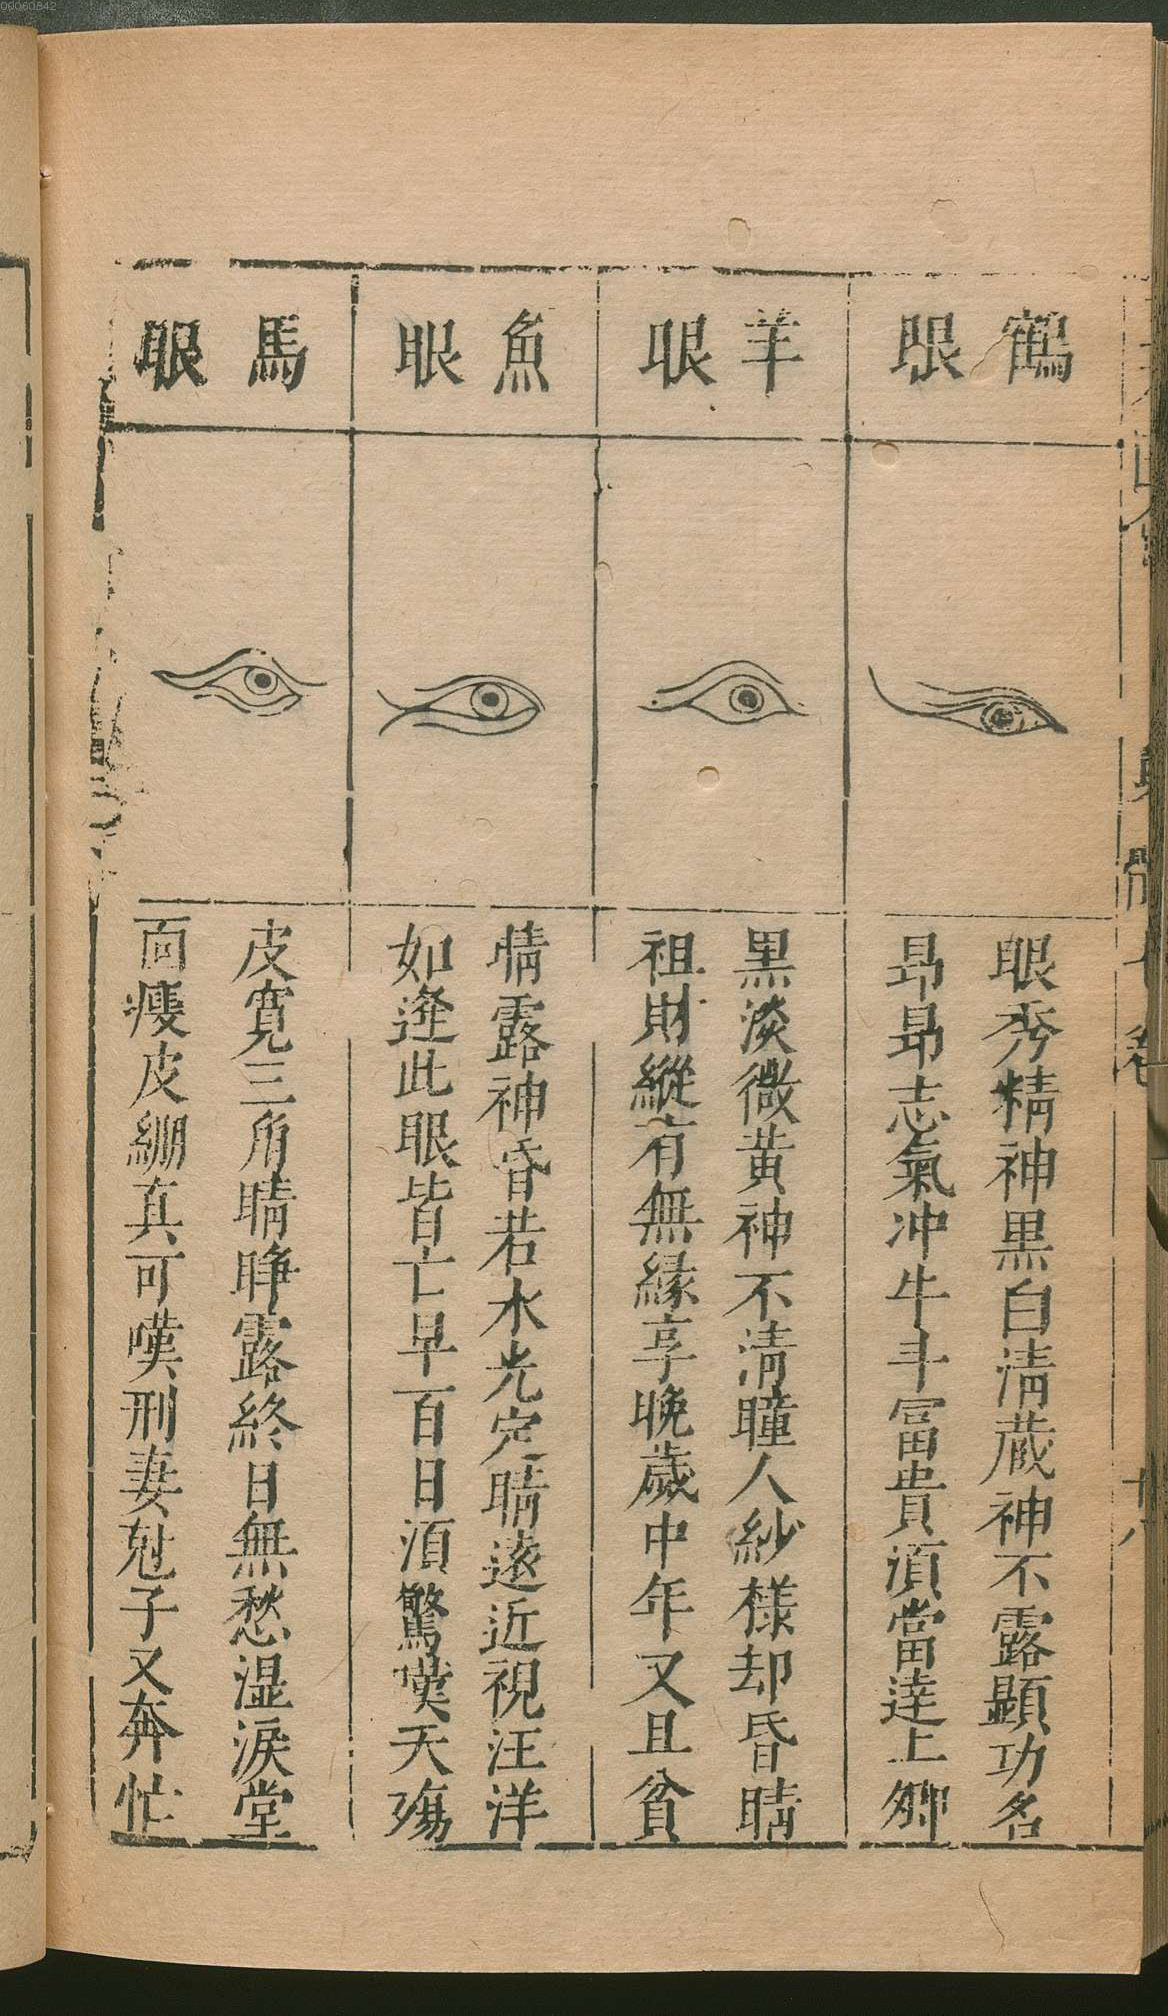 鶴眼
眼秀精神黒白清藏神不露顯功名
昻昻志氣冲牛斗冨貴湏當逹上卿
羊眼
黒淡微黄神不清瞳人紗様却昏睛
祖財縱有無緣享晚歲中年又且貧
魚眼
睛露神昏若水光定睛遠近視汪洋
如逢此眼皆亡早百日湏驚嘆夭殤
馬眼
皮寛三角睛睁露終日無愁湿淚堂
面瘦皮綳真可嘆刑妻尅子又奔忙
00060842